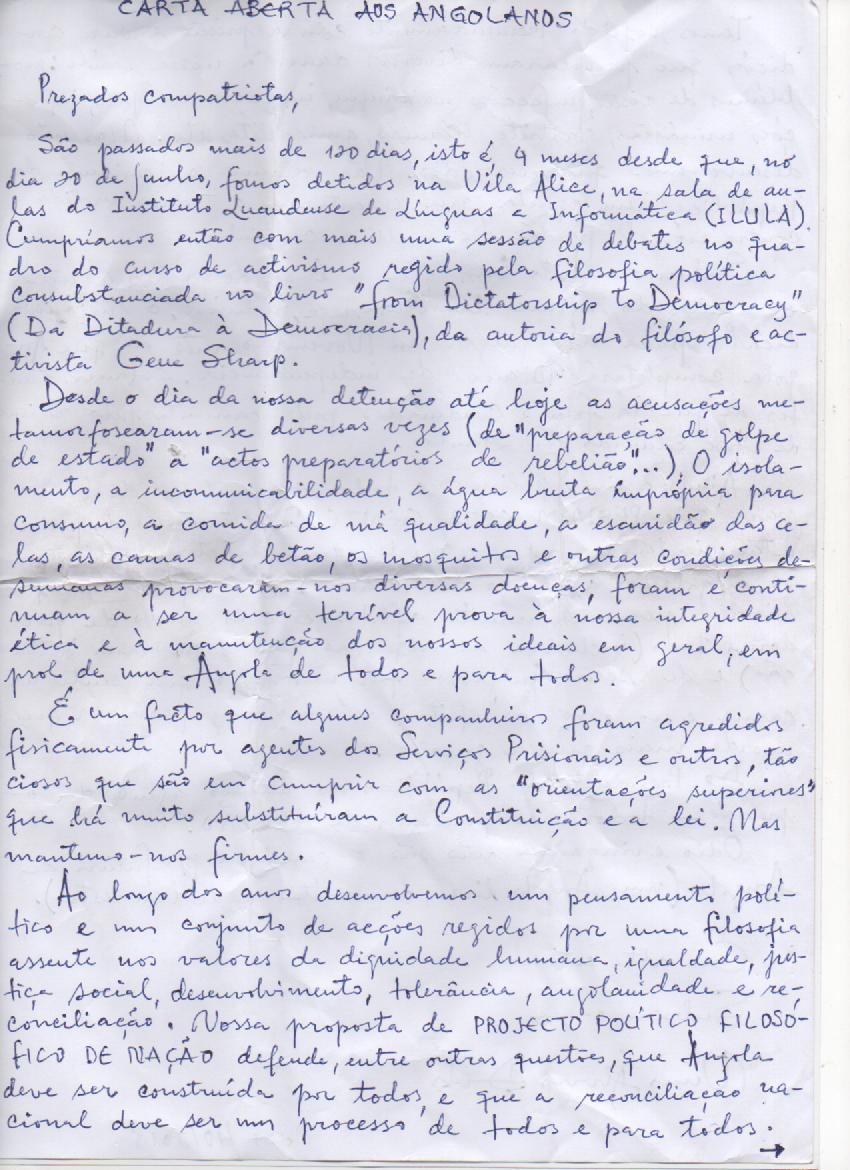 CARTA ABERTA AOS ANGOLANOS
Prezados compatriotas,
São passados mais de 120 dias, isto é, 4 meses desde que, no
dia 20 de Junho, fomos detidos na Vila Alice, na sala de au-
las do Instituto Luandense de Línguas e Informática (ILULA).
Cumpríamos então com mais uma sessão de debates no qua-
dro do curso de activismo regido pela filosofia política
consubstanciada no livro "from Dictatorship to Democracy"
(Da Ditadura à Democracia), da autoria do filósofo e ac-
tivista Gene Sharp.
Desde o dia da nossa detenção até hoje as acusações me-
tamorfosearam-se diversas vezes (de "preparação de golpe
de estado" a "actos preparatórios de rebelião"...). O isola-
mento, a incomunicabilidade, a água bruta imprópria para
consumo, a comida de má qualidade, a escuridão das ce-
las, as camas de betão, os mosquitos e outras condições de-
sumanas provocaram-nos diversas doenças, foram e conti-
nuam a ser uma terrível prova à nossa integridade
ética e à manutenção dos nossos ideais em geral, em
prol de uma Angola de todos e para todos.
É um facto que alguns companheiros foram agredidos
fisicamente por agentes dos Serviços Prisionais e outros, tão
ciosos que são em cumprir com as "orientações superiores"
que há muito substituíram a Constituição e a lei. Mas
mantemo-nos firmes.
Ao longo dos anos desenvolvemos um pensamento polí-
tico e um conjunto de acções regidos por uma filosofia
assente nos valores da dignidade humana, igualdade, jus-
tiça social, desenvolvimento, tolerância, angolanidade e re-
conciliação. Nossa proposta de PROJECTO POLÍTICO FILOSÓ-
FICO DE NAÇÃO defende, entre outras questões, que Angola
deve ser construída por todos e que a reconciliação na-
cional deve ser um processo de todos e para todos.
→